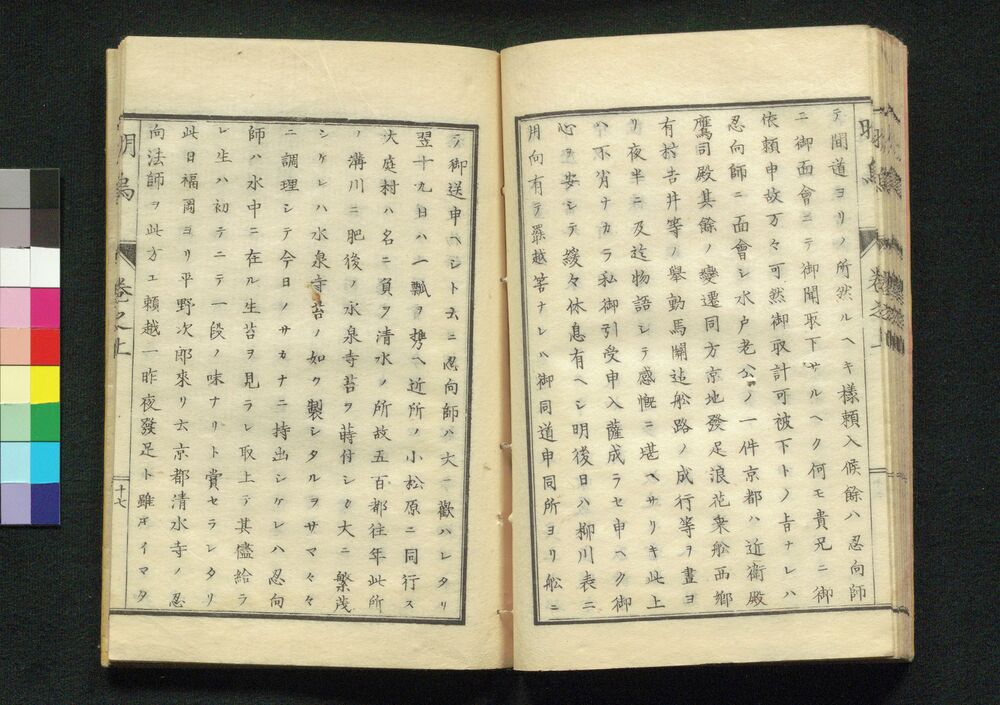 テ間道ヨリノ所然ルヘキ様頼入候餘ハ忍向師
ニ御面會ニテ御聞取下サルヘク何モ貴兄ニ御
依頼申故万々可然御取計可被下トノ旨ナレハ
忍向師ニ面會シ水戸老公ノ一件京都ハ近衛殿
鷹司殿其餘ノ變遷同方京地發足浪花乗舩西郷
有村吉井等ノ擧動馬關迠舩路ノ成行等ヲ晝ヨ
リ夜半ニ及迠物語シテ感慨ニ堪ヘサリキ此上
ハ不肖ナカラ私御引受申入薩成ラセ申ヘク御
心ヲ安シテ緩々休息有ヘシ明後日ハ柳川表ニ
用向有テ罷越筈ナレハ御同道申同所ヨリ舩ニ
テ御送申ヘシト云ニ忍向師ハ大ニ歡ハレタリ
翌十九日ハ一瓢ヲ携ヘ近所ノ小松原ニ同行ス
大庭村ハ名ニ負フ清水ノ所故五百都往年此所
ノ溝川ニ肥後ノ水泉寺苔ヲ蒔付シカ大ニ繁茂
シケレハ水泉寺苔ノ如ク製シタルヲサマ々々
ニ調理シテ今日ノサカナニ持出シケレハ忍向
師ハ水中ニ在ル生苔ヲ見ラレ取上テ其儘給ラ
レ生ハ初テニテ一段ノ味ナリト賞セラレタリ
此日福岡ヨリ平野次郎來リ云京都清水寺ノ忍
向法師ヲ此方エ頼越一昨夜發足ト雖𪜈イマタ
明烏 卷之上
十七